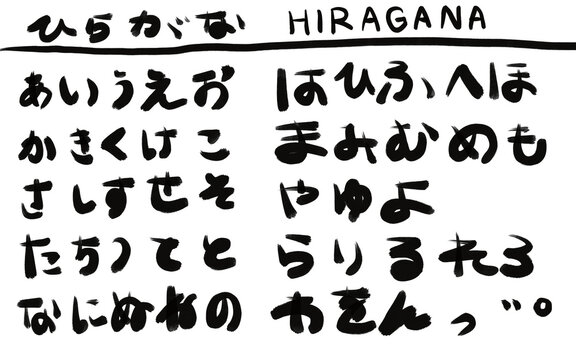 ひらがな HIRAGANA
あいうえお
かきくけこ
さしすせそ
たちつてと
なにぬねの
はひふへほ
まみむめも
やゆよ
らりるれろ
わをんっ゛゜